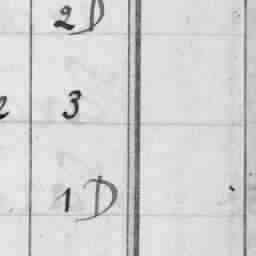 2D
3
1D